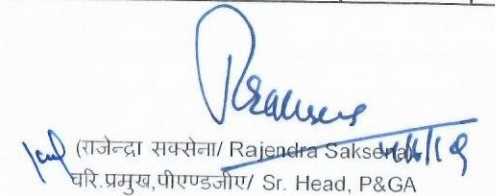 (राजेन्द्रा सक्सेना/ Rajendra Saksena)
वरि.प्रमुख,पीएण्डजीए/ Sr. Head, P&GA